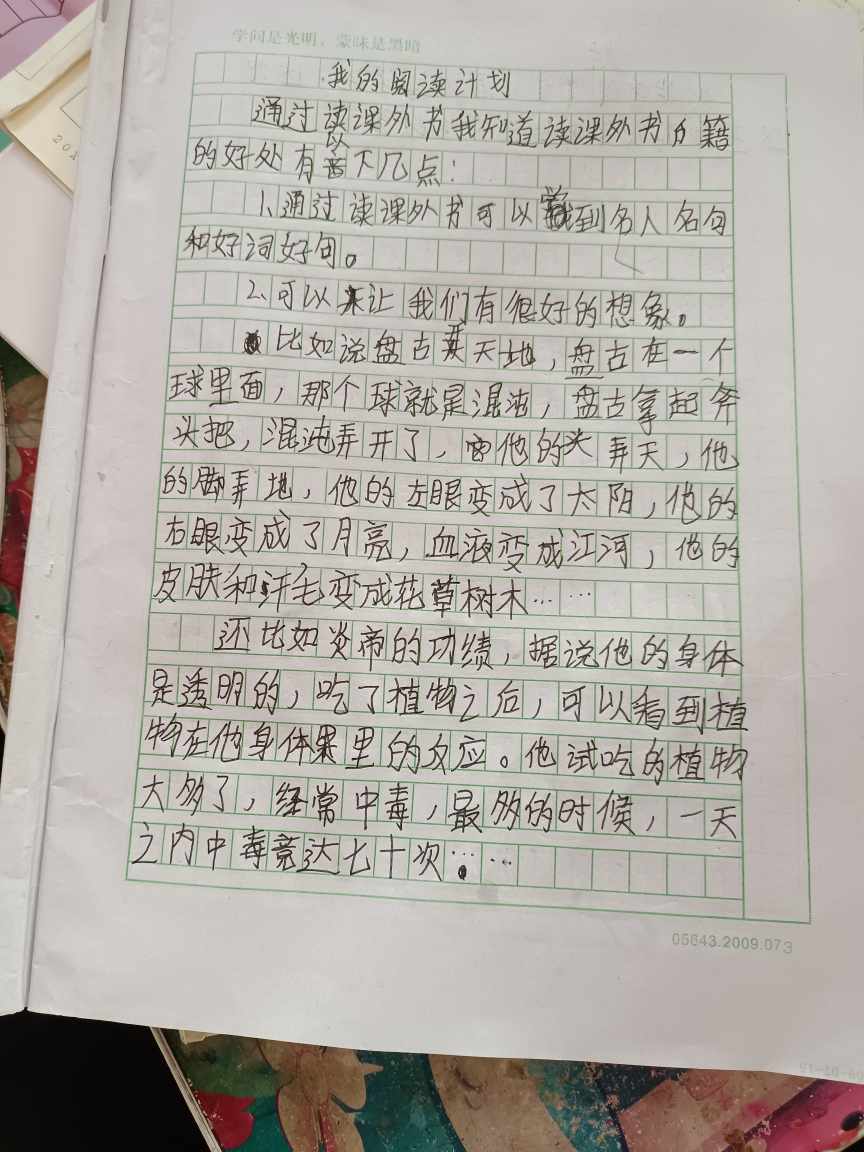 学问是光明，蒙昧是黑暗
我的阅读计划
通过读课外书我知道读课外书籍
的好处有以下几点：
1、通过读课外书可以学到名人名句
和好词好句。
2、可以让我们有很好的想象。
比如说盘古开天地，盘古在一个
球里面，那个球就是混沌，盘古拿起斧
头把，混沌弄开了，他的头弄天，他
的脚弄地，他的左眼变成了太阳，他的
右眼变成了月亮，血液变成江河，他的
皮肤和汗毛变成花草树木……
还比如炎帝的功绩，据说他的身体
是透明的，吃了植物之后，可以看到植
物在他身体里的反应。他试吃的植物
大多了，经常中毒，最多的时候，一天
之内中毒竟达七十次……
05643.2009.073